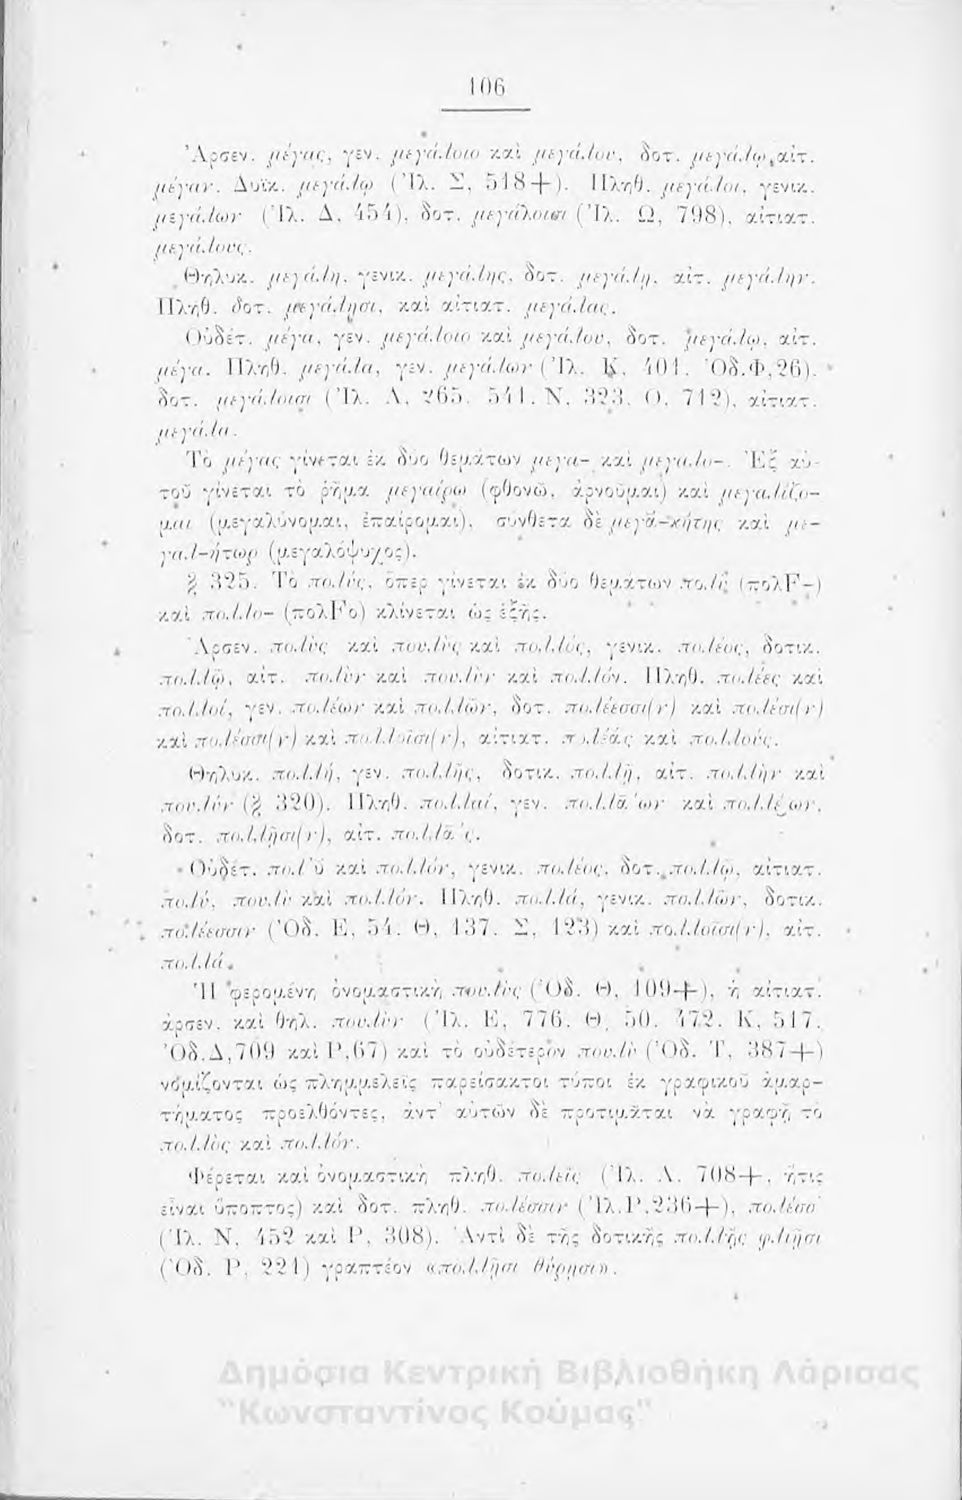 106
Ἀρσεν. μέγας, γεν. μεγάλοιο καὶ μεγάλου, δοτ. μεγάλῳ, αἰτ.
μέγαν. Δυϊκ. μεγάλω (Ἰλ. Σ, 518+). Πληθ. μεγάλοι, γενικ.
μεγάλων (Ἰλ. Δ, 454), δοτ. μεγάλοισι (Ἰλ. Ω, 798), αἰτιατ.
μεγάλους.
Θηλυκ. μεγάλη, γενικ. μεγάλης, δοτ. μεγάλῃ, αἰτ. μεγάλην.
Πληθ. δοτ. μεγάλῃσι, καὶ αἰτιατ. μεγάλας.
Οὐδέτ. μέγα, γεν. μεγάλοιο καὶ μεγάλου, δοτ. μεγάλῳ, αἰτ.
μέγα. Πληθ. μεγάλα, γεν. μεγάλων (Ἰλ. Κ, 401. Ὀδ.Φ,26).
δοτ. μεγάλοισι (Ἰλ. Λ, 265. 541. Ν, 323. Ο, 712), αἰτιατ.
μεγάλα.
Τὸ μέγας γίνεται ἐκ δύο θεμάτων μεγα- καὶ μεγαλο-. Ἐξ αὐ-
τοῦ γίνεται τὸ ῥῆμα μεγαίρω (φθονῶ, ἀρνοῦμαι) καὶ μεγαλίζο-
μαι (μεγαλύνομαι, ἐπαίρομαι), σύνθετα δὲ μεγα-κήτης καὶ με-
γαλ-ήτωρ (μεγαλόψυχος).
§ 325. Τὸ πολύς, ὅπερ γίνεται ἐκ δύο θεμάτων πολυ (πολF-)
καὶ πολλο- (πολFο) κλίνεται ὡς ἑξῆς.
Ἀρσεν. πολὺς καὶ πουλὺς καὶ πολλός, γενικ. πολέος, δοτικ.
πολλῷ, αἰτ. πολὺν καὶ πουλὺν καὶ πολλόν. Πληθ. πολέες καὶ
πολλοί, γεν. πολέων καὶ πολλῶν, δοτ. πολέεσσι(ν) καὶ πολέσι(ν)
καὶ πολέσσι(ν) καὶ πολλοῖσι(ν), αἰτιατ. πολέας καὶ πολλούς.
Θηλυκ. πολλή, γεν. πολλῆς, δοτικ. πολλῇ, αἰτ. πολλὴν καὶ
πουλὺν (§ 320). Πληθ. πολλαί, γεν. πολλάων καὶ πολλέων,
δοτ. πολλῇσι(ν), αἰτ. πολλάς.
Οὐδέτ. πολὺ καὶ πολλόν, γενικ. πολέος, δοτ. πολλῷ, αἰτιατ.
πολύ, πουλὺ καὶ πολλόν. Πληθ. πολλά, γενικ. πολλῶν, δοτικ.
πολέεσσιν (Ὀδ. Ε, 54. Θ, 137. Σ, 123) καὶ πολλοῖσι(ν), αἰτ.
πολλά.
Ἡ φερομένη ὀνομαστικὴ πουλὺς (Ὀδ. Θ, 109+), ἡ αἰτιατ.
ἀρσεν. καὶ θηλ. πουλὺν (Ἰλ. Ε, 776. Θ, 50. 472. Κ, 517.
Ὀδ.Δ,709 καὶ Ρ,67) καὶ τὸ οὐδέτερον πουλὺ (Ὀδ. Τ, 387+)
νομίζονται ὡς πλημμελεῖς παρείσακτοι τύποι ἐκ γραφικοῦ ἁμαρ-
τήματος προελθόντες, ἀντ' αὐτῶν δὲ προτιμᾶται νὰ γραφῇ τὸ
πολλὸς καὶ πολλόν.
Φέρεται καὶ ὀνομαστικὴ πληθ. πολεῖς (Ἰλ. Λ. 708+, ἥτις
εἶναι ὕποπτος) καὶ δοτ. πληθ. πολέσσιν (Ἰλ.Ρ,236+), πολέσσ'
(Ἰλ. Ν, 452 καὶ Ρ, 308). Ἀντὶ δὲ τῆς δοτικῆς πολλῇς φλιῇσι
(Ὀδ. Ρ, 221) γραπτέον «πολλῇσι θύρῃσι».
Δημόσια Κεντρική Βιβλιοθήκη Λάρισας
"Κωνσταντίνος Κούμας"